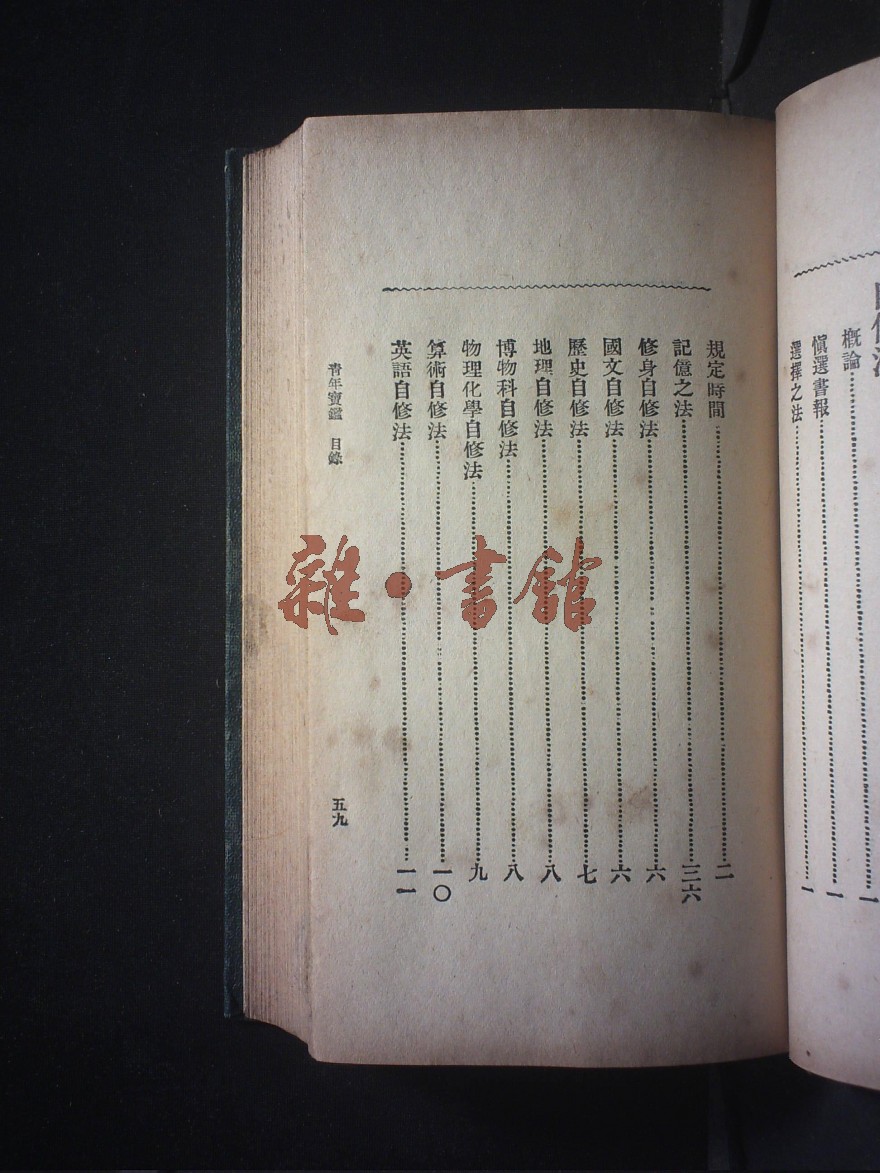 自修法
概論……一
愼選書報……一
選擇之法……一
規定時間……二
記憶之法……三六
修身自修法……六
國文自修法……六
歷史自修法……七
地理自修法……八
博物科自修法……八
物理化學自修法……九
算術自修法……一〇
英語自修法……一一
青年寶鑑 目錄
五九
雜·書館